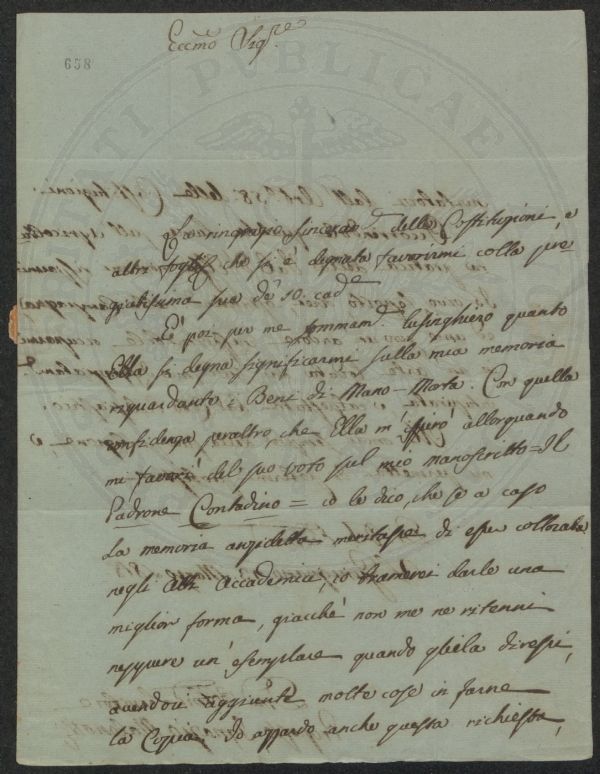 Eccmo Sigre
658
La ringrazio sinceram.e delle Costituzioni, e
altri foglj che si è degnata favorirmi colla pre-
giatissima sua de' 10. cad.e
E' poi per me sommam.e lusinghiero quanto
Ella si degna significarmi sulla mia memoria
riguardante i Beni di Mano-Morta. Con quella
confidenza peraltro, che Ella m'ispirò allorquando
mi favorì del suo voto sul mio manoscritto = Il
Padrone Contadino = io le dico, che se a caso
la memoria anzidetta meritasse di esser collocata
negli Atti Accademici, io bramerei darle una
miglior forma, giacchè non me ne ritenni
neppure un' esemplare quando gliela diressi,
avendovi aggiunte molte cose in farne
la Copia. Io azzardo anche questa richiesta,